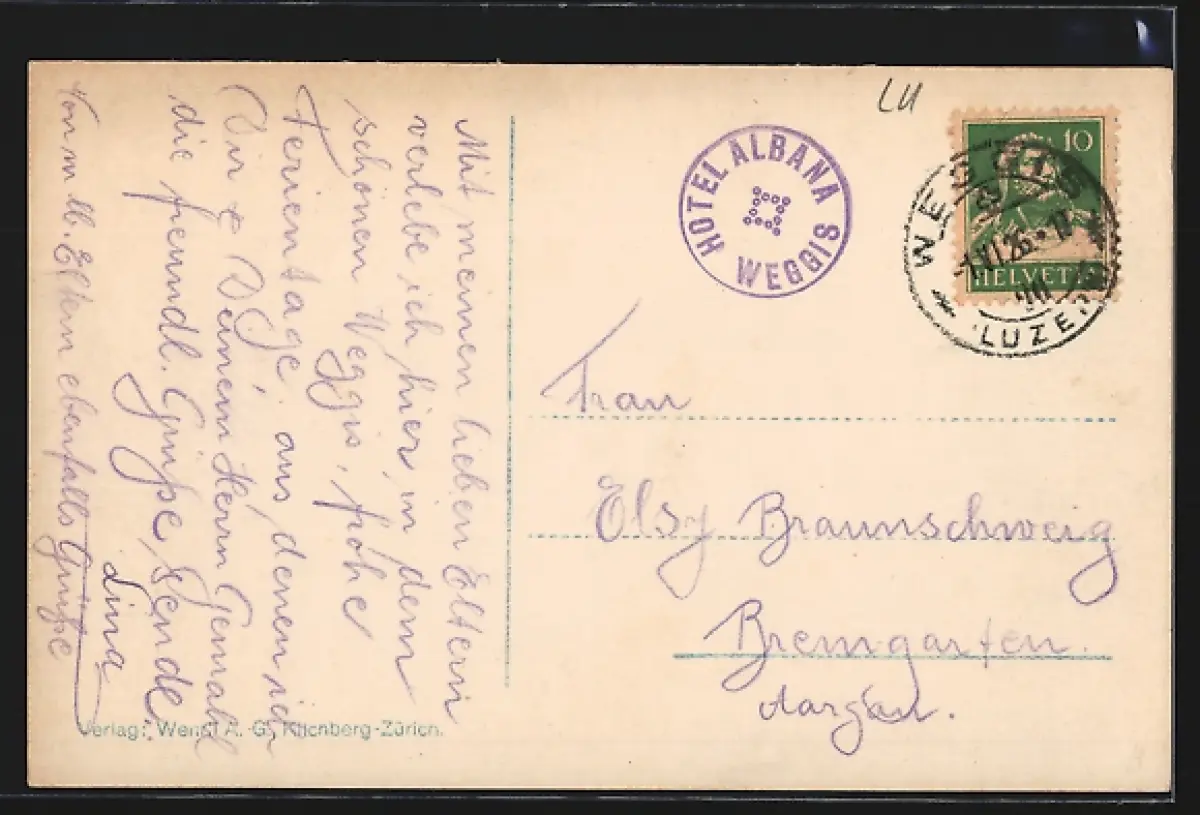 Mit meinen lieben Eltern
verlebe ich hier, in dem
schönen Weggis, frohe
Ferientage, aus denen ich
Dir & Deinem Herrn Gemahl
die freundl. Grüsse, sende
Lina
Von m. lb. Eltern ebenfalls Grüße
Verlag: Wehrli A.-G. Kilchberg-Zürich.
HOTEL ALBANA
WEGGIS
LU
10
HELVETIA
WEGGIS
VII.26
LUZERN
Frau
Elsy Braunschweig
Bremgarten.
Aargau.